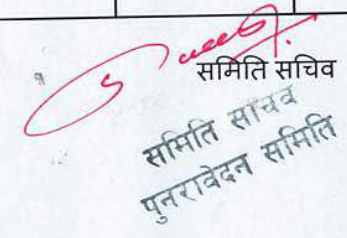 समिति सचिव
समिति सचिव
पुनरावेदन समिति